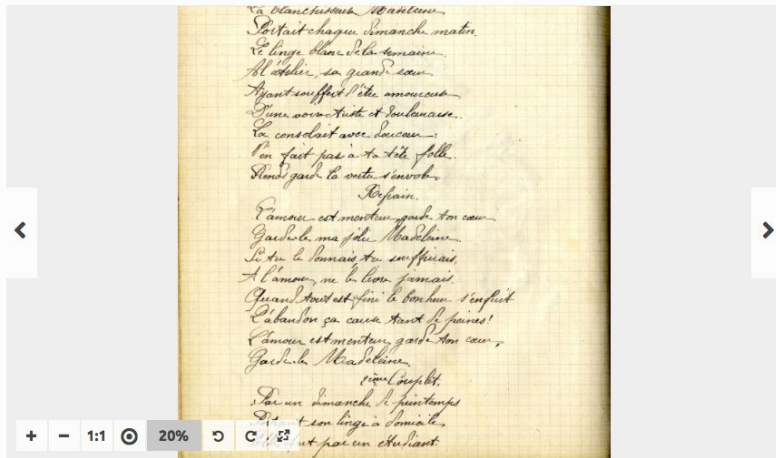 La blanchisseuse Madeleine
Portait chaque dimanche matin.
Le linge blanc de la semaine
A l'atelier, sa grande sœur
Ayant souffert d'être amoureuse
D'une voix triste et
La consolait avec douceur.
T'en fait pas à ta tête folle
Prends garde la vertu s'envole
Refrain.
L'amour est menteur, garde ton cœur
Garde le ma jolie Madeleine.
Si tu le donnais, tu souffrirais,
A l'amour, ne le livre jamais.
Quand tout est fini le bonheur s'enfuit
L'abandon ça cause tant de peines!
L'amour est menteur, garde ton cœur,
Garde le Madeleine
2ième Couplet.
Par un dimanche de printemps
Portant son linge à domicile
par un étudiant.
1:1
20%